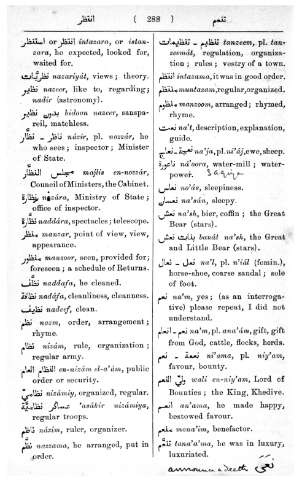 انتظر ( 288 ) تنعم
انتظر or استنظر intazara, or istan-
zara, he expected, looked for,
waited for.
نظريّات nazariyát, views; theory.
نظير nazeer, like to, regarding;
nadir (astronomy).
بدون نظير bidoon nazeer, sanspa-
reil, matchless.
ناظر - نظّار názir, pl. nozzár, he
who sees; inspector; Minister
of State.
مجلس النظّار majlis en-nozzár,
Council of Ministers, the Cabinet.
نظارة nazára, Ministry of State;
office of inspector.
نظّارة naddára, spectacles; telescope.
منظر manzar, point of view, view,
appearance.
منظور manzoor, seen, provided for;
foreseen; a schedule of Returns.
نظّف naddafa, he cleaned.
نظافة nadáfa, cleanliness, cleanness.
نظيف nadeef, clean.
نظم nazm, order, arrangement;
rhythm.
نظام nizám, rule, organization;
regular army.
النظام العام en-nizám el-a'ám, public
order or security.
نظامي nizámiy, organized, regular.
عساكر نظاميّة 'asákir nizámiya,
regular troops.
ناظم názim, ruler, organizer.
نظّم nazzama, he arranged, put in
order.
تنظيم - تنظيمات tanzeem, pl. tan-
zeemát, regulation, organiza-
tion; rules; vestry of a town.
انتظم intazama, it was in good order.
منتظم muntazam, regular, organized.
منظوم manzoom, arranged; rhymed,
rhyme.
نعت na't, description, explanation,
guide.
نعجة - نعاج na'ja, pl. ni'áj, ewe, sheep.
ناعورة ná'oora, water-mill; water-
power.
نعاس na'ás, sleepiness.
نعسان na'sán, sleepy.
نعش na'sh, bier, coffin; the Great
Bear (stars).
بنات نعش banát na'sh, the Great
and Little Bear (stars).
نعل - نعال na'l, pl. ni'ál (femin.),
horse-shoe, coarse sandal; sole
of foot.
نعم na'm, yes; (as an interroga-
tive) please repeat, I did not
understand.
نعم - انعام na'm, pl. ana'ám, gift, gift
from God, cattle, flocks, herds.
نعمة - نعم ni'ama, pl. niy'am,
favour, bounty.
ولي النعم wali en-niy'am, Lord of
Bounties; the King, Khedive.
انعم an'ama, he made happy,
bestowed favour.
منعم mona'im, benefactor.
تنعّم tana"a'ma, he was in luxury,
luxuriated.
announce a death نعى